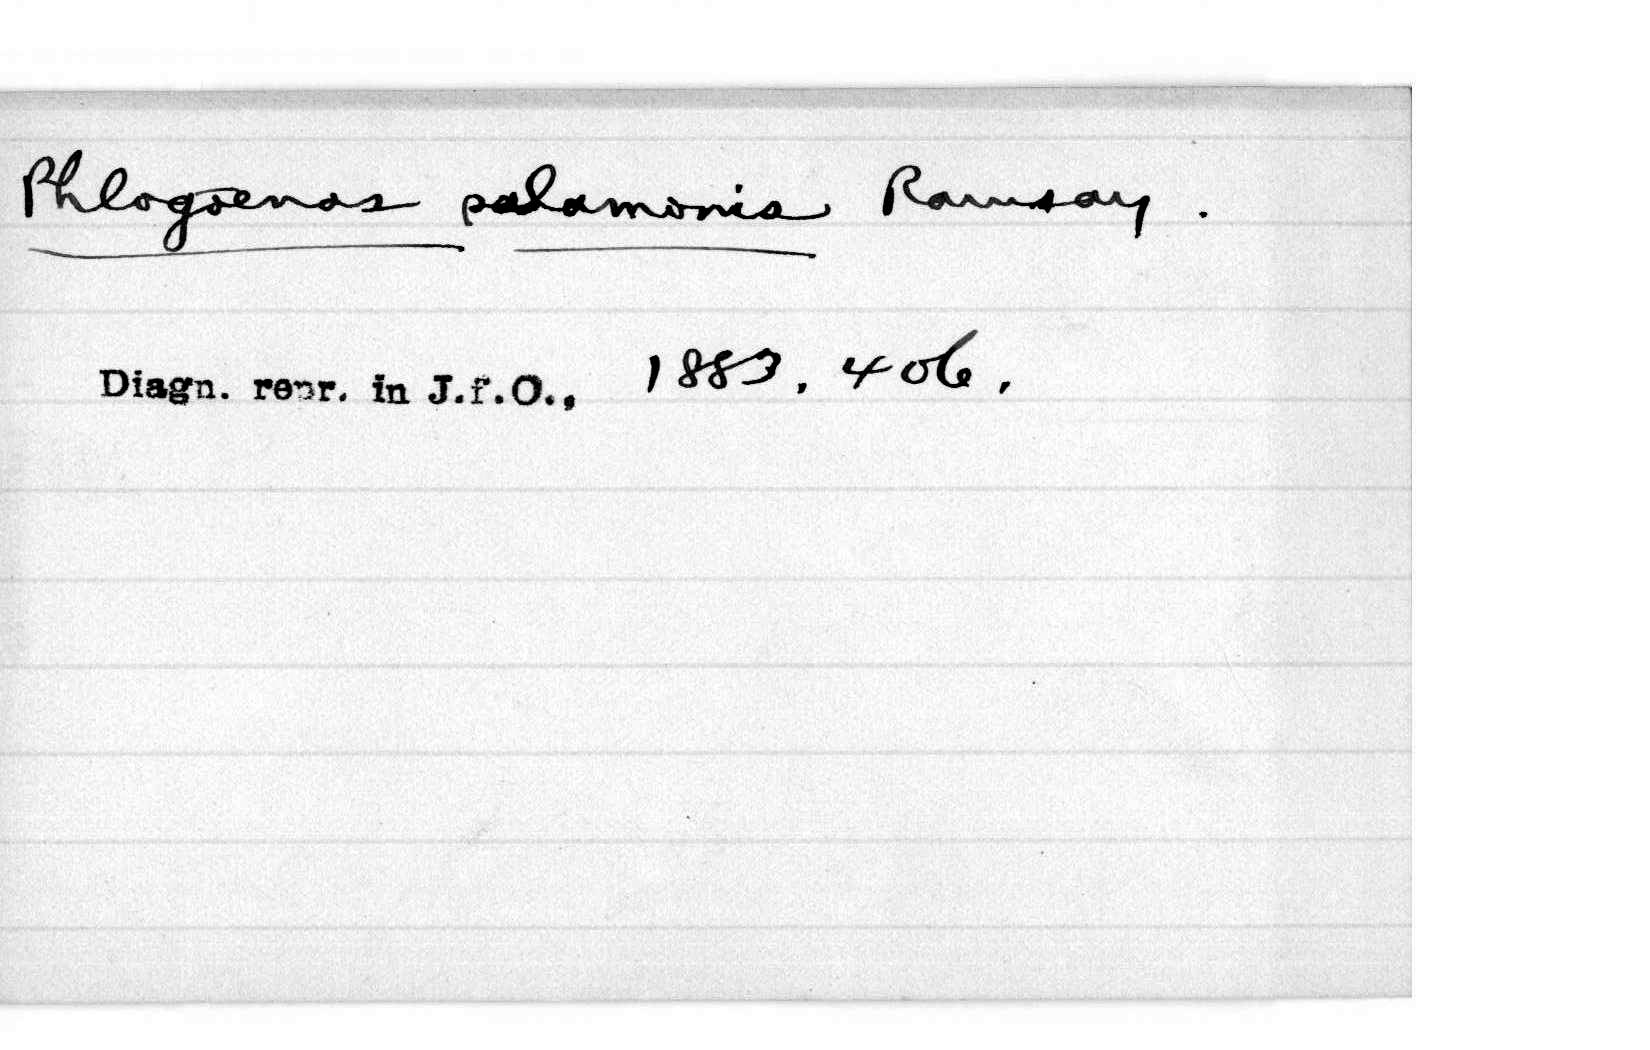 Phlogoenas salamonis Ramsay.
Diagn. repr. in J.f.O., 1883, 406.